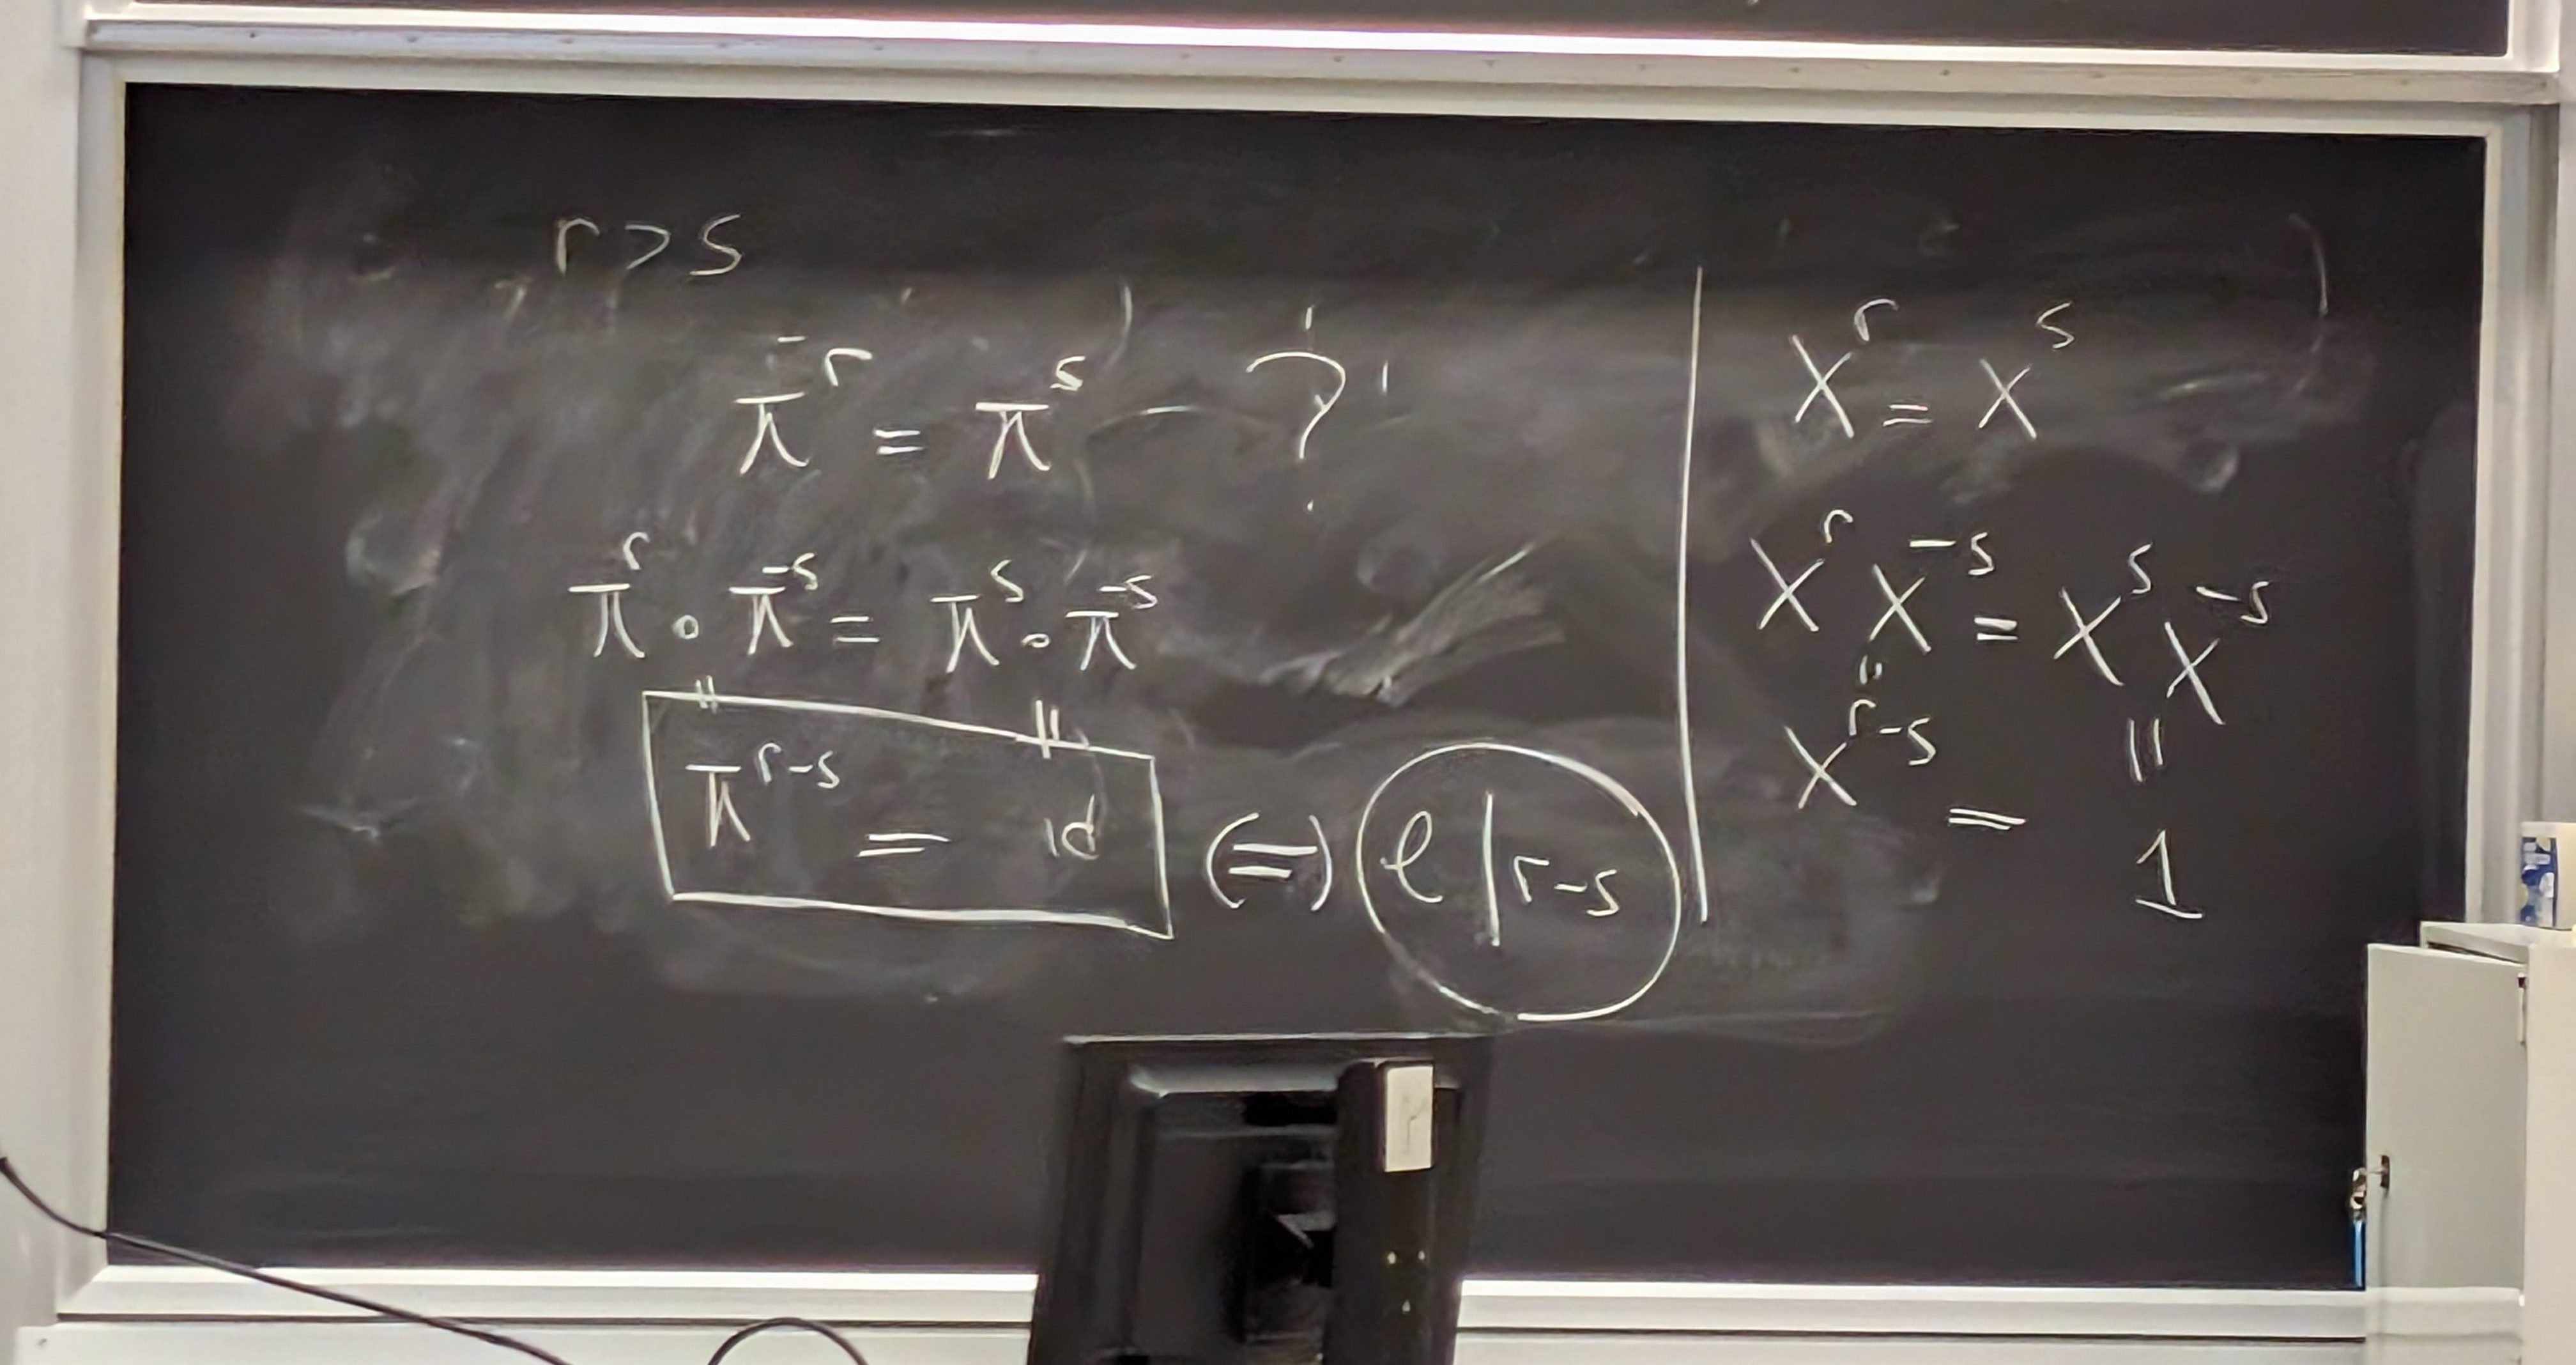 r > s
π^r = π^s ?
π^r ∘ π^-s = π^s ∘ π^-s
|| ||
π^r-s = id (=) ℓ | r-s
X^r = X^s
X^r X^-s = X^s X^-s
|| ||
X^r-s = 1